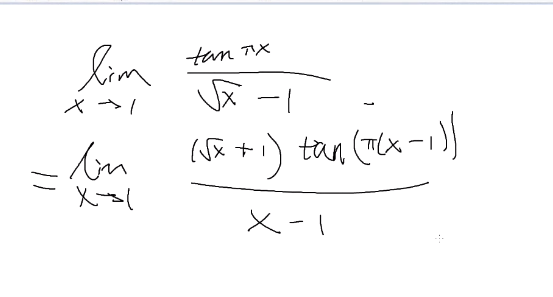 lim_{x→1} \frac{tan πx}{√x - 1}
= lim_{x→1} \frac{(√x + 1) tan(π(x-1))}{x - 1}